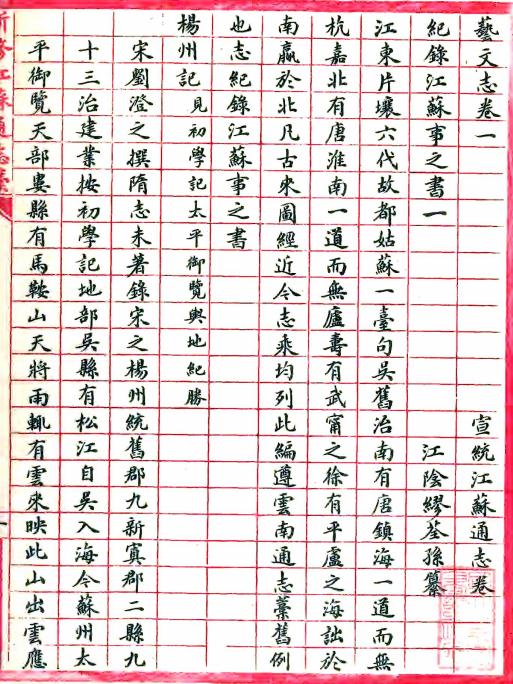 藝文志卷一　宣統江蘇通志卷
紀錄江蘇事之書一　江陰繆荃孫纂
江東片壤六代故都姑蘇一臺句吳舊治南有唐鎮海一道而無
杭嘉北有唐淮南一道而無廬壽有武甯之徐有平盧之海詘於
南贏於北凡古來圖經近今志乘均列此編遵雲南通志藁舊例
也志紀錄江蘇事之書
楊州記　見初學記太平御覽輿地紀勝
宋劉澄之撰隋志未著錄宋之楊州統舊郡九新寘郡二縣九
十三治建業按初學記地部吳縣有松江自吳入海今蘇州太
平御覽天部婁縣有馬鞍山天將雨輒有雲來映此山出雲應